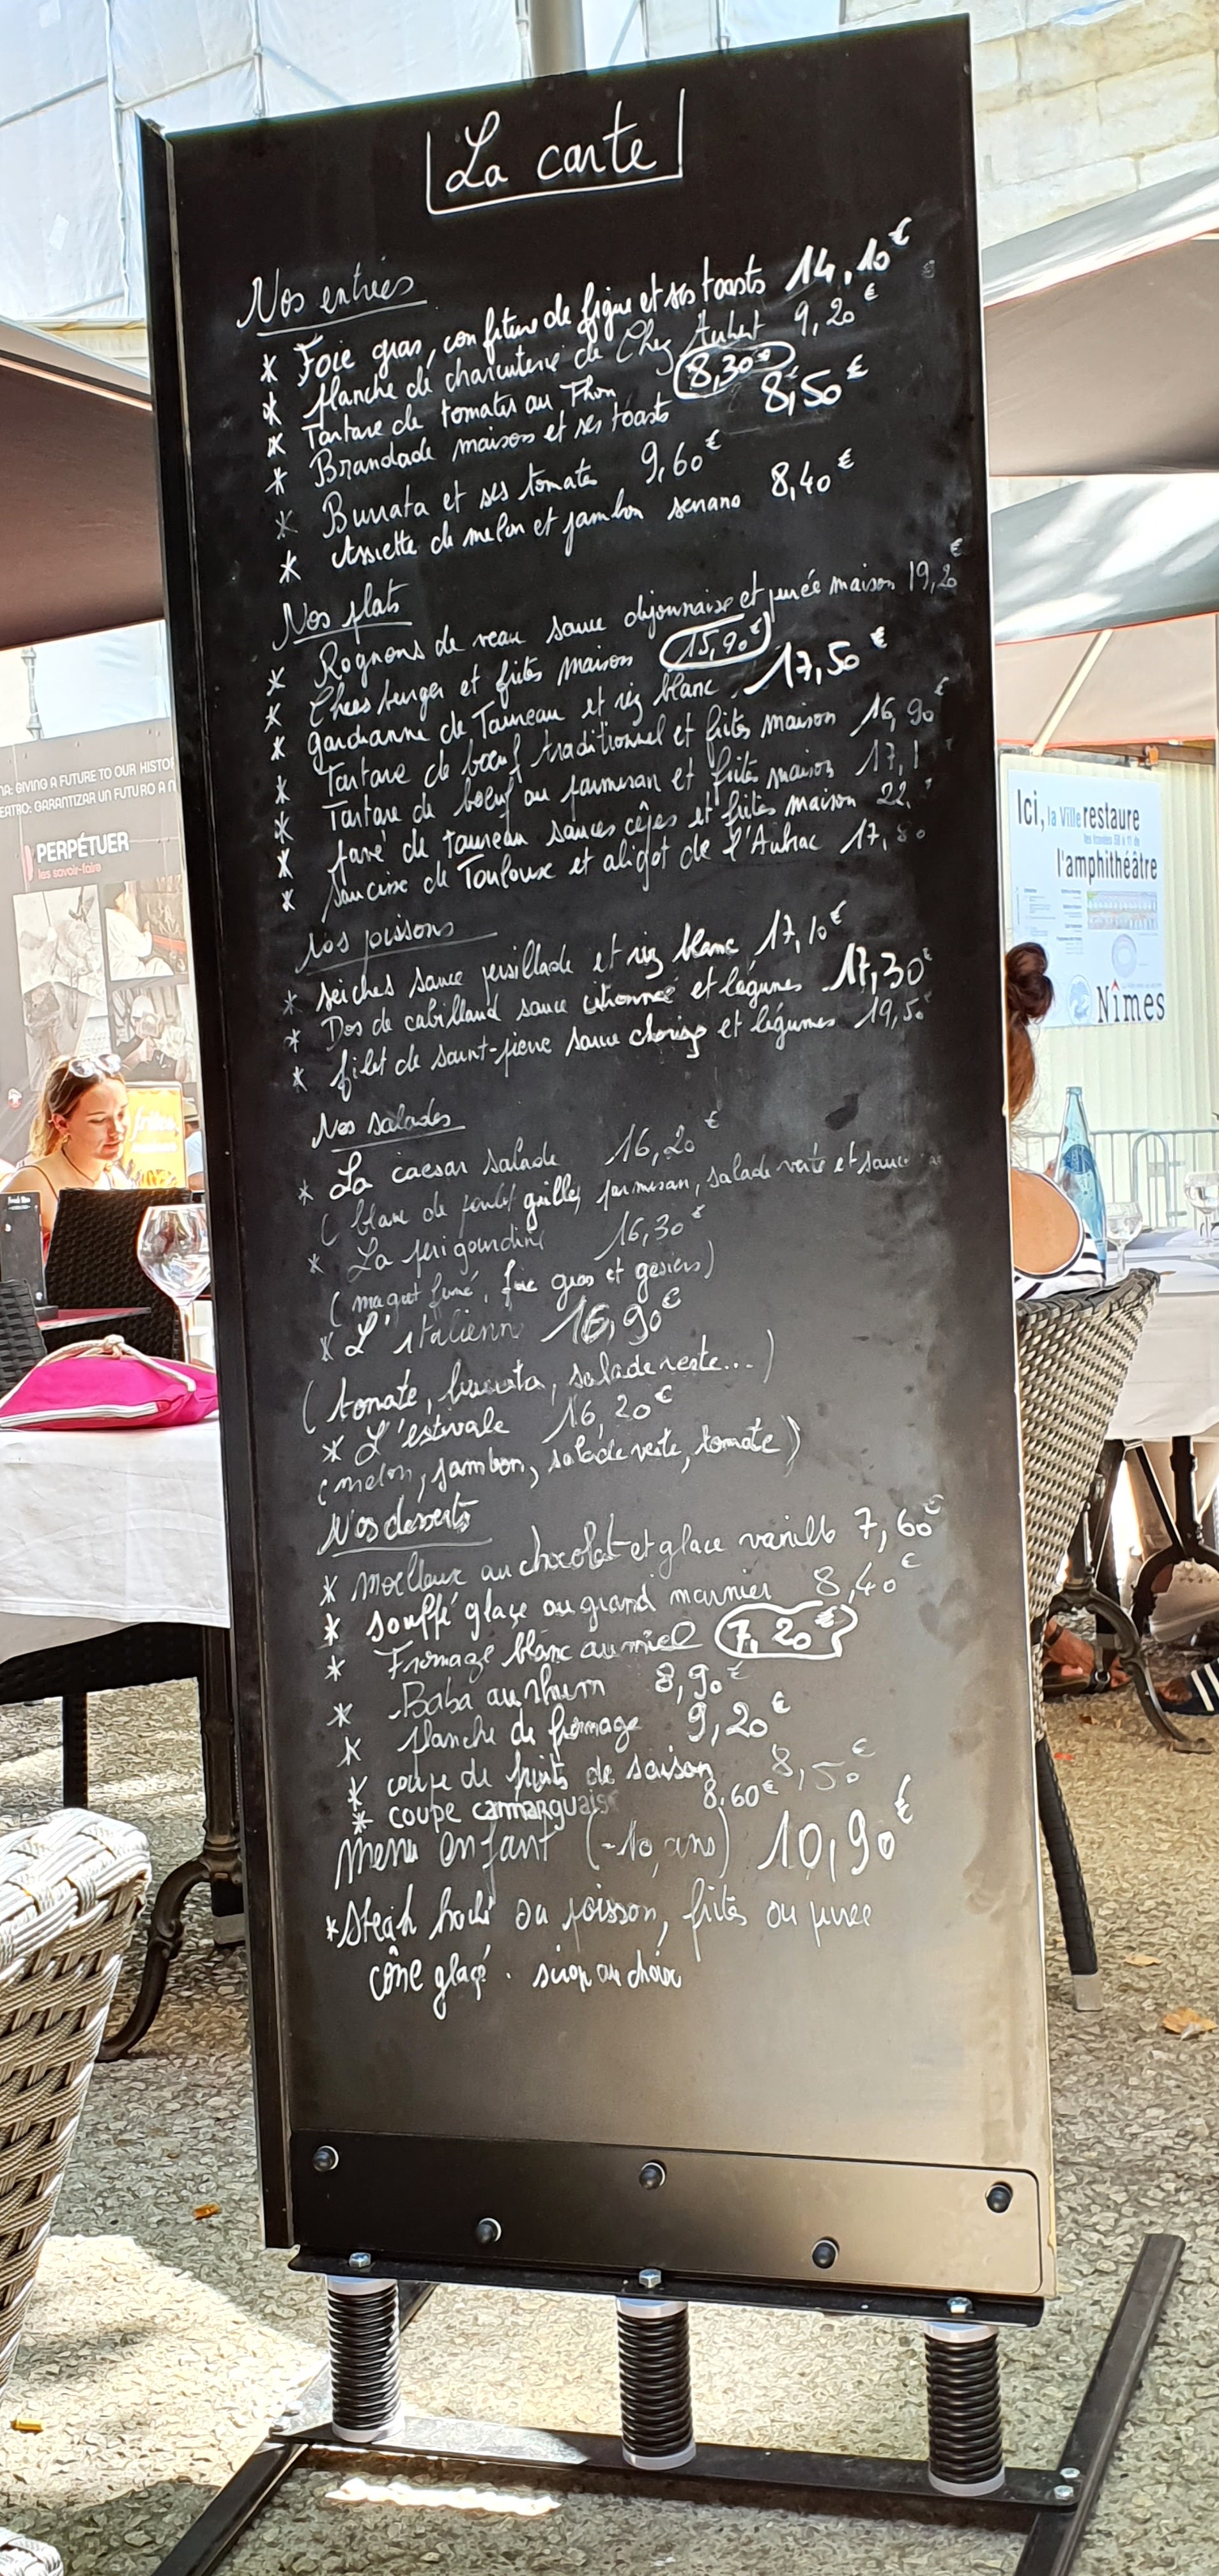 La carte
Nos entrées
* Foie gras, confiture de figue et ses toasts 14,10€
* Planche de charcuterie de Chez Aubert 9,20€
* Tartare de tomates au Thon 8,30€
* Brandade maison et ses toasts 8,50€
* Burrata et ses tomates 9,60€
* Assiette de melon et jambon serrano 8,40€
Nos plats
* Rognons de veau sauce dijonnaise et purée maison 19,20€
* Cheeseburger et frites maison 15,90€
* gardianne de Taureau et riz blanc 17,50€
* Tartare de bœuf traditionnel et frites maison 16,90€
* Tartare de boeuf au parmesan et frites maison 17,1
* Pavé de Taureau sauces cèpes et frites maison 22,
* Saucisse de Toulouse et aligot de l'Aubrac 17,80
Nos pissons
* Seiches sauce persillade et riz blanc 17,10€
* Dos de cabillaud sauce citronnée et légumes 17,30€
* filet de saint-pierre sauce chorizo et légumes 19,50€
Nos salades
* La caesar salade 16,20€
( blanc de poulet grillés, parmesan, salade verte et sauce
* La périgourdine 16,30€
( magret fumé, foie gras et gesiers)
* L'italienne 16,90€
( tomate, burrata, salade verte...)
* L'estivale 16,20€
(melon, jambon, salade verte, tomate)
Nos desserts
* Moelleux au chocolat et glace vanille 7,60€
* Soufflé glaçe au grand marnier 8,40€
* Fromage blanc au miel 7,20€
* Baba au rhum 8,90€
* Planche de fromage 9,20€
* coupe de fruits de saison 8,50€
* COUPE camarguaise 8,60€
Menu enfant (-10 ans) 10,90€
* Steak haché ou poisson, frites ou purée
cône glaçé . sirop au choix
: GIVING A FUTURE TO OUR HISTO
GARANTIZAR UN FUTURO A N
PERPÉTUER
les savoir-faire
frites
Ici, la Ville restaure
l'amphithéâtre
Nîmes